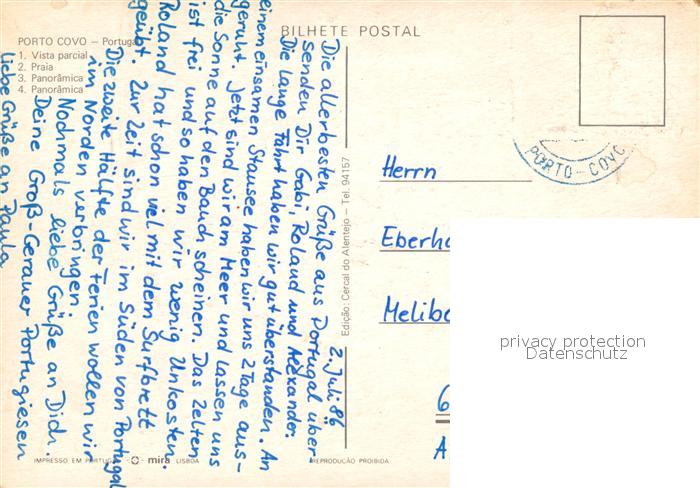 BILHETE POSTAL
PORTO COVO – Portugal
1. Vista parcial
2. Praia
3. Panorâmica
4. Panorâmica
2. Juli 86
Die allerbesten Grüße aus Portugal über
senden Dir Gabi, Roland und Alexander.
Die lange Fahrt haben wir gut überstanden. An
einem einsamen Stausee haben wir uns 2 Tage aus-
geruht. Jetzt sind wir am Meer und lassen uns
die Sonne auf den Bauch scheinen. Das Zelten
ist frei und so haben wir wenig Unkosten.
Roland hat schon viel mit dem Surfbrett
geübt. Zur Zeit sind wir im Süden von Portugal
Die zweite Hälfte der Ferien wollen wir
im Norden verbringen.
Nochmals liebe Grüße an Dich.
Deine Groß-Gerauer Portugiesen
liebe Grüße an Paula
Edição: Cercal do Alentejo – Tel. 94157
PORTO-COVO
Herrn
Eberha
Melibo
6
A
privacy protection
Datenschutz
IMPRESSO EM PORTUGAL
mira LISBOA
REPRODUÇÃO PROIBIDA